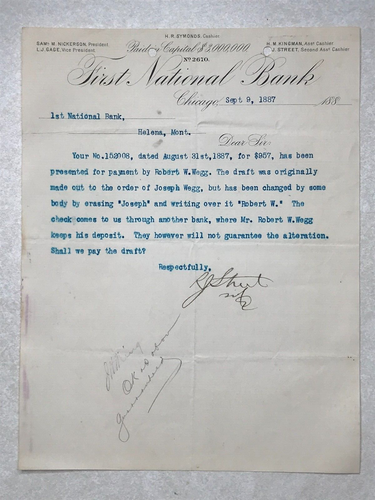 H. R. SYMONDS, Cashier
SAM'L M. NICKERSON, President.
L.J. GAGE, Vice President.
Paid up Capital $3,000,000
H. M. KINGMAN, Asst Cashier
J. STREET, Second Asst Cashier
No 2610.
First National Bank
Chicago Sept 9, 1887 188
1st National Bank,
Helena, Mont.
Dear Sir:
Your No.152908, dated August 31st,1887, for $957, has been
presented for payment by Robert W.Wegg. The draft was originally
made out to the order of Joseph Wegg, but has been changed by some
body by erasing "Joseph" and writing over it "Robert W." The
check comes to us through another bank, where Mr. Robert W.Wegg
keeps his deposit. They however will not guarantee the alteration.
Shall we pay the draft?
Respectfully,
Street
OK